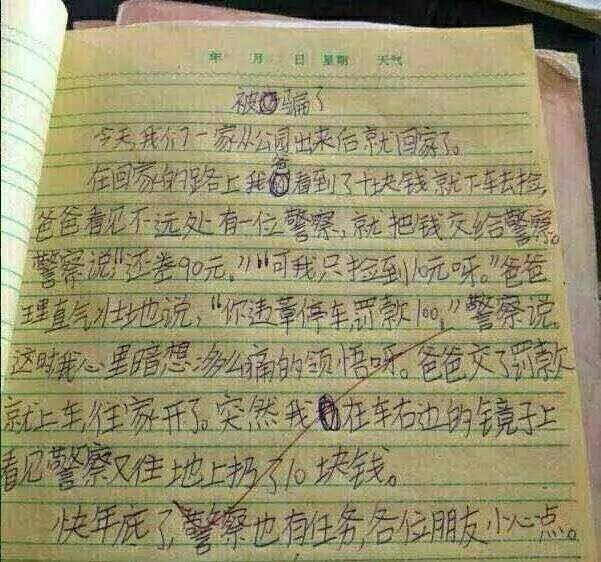 年 月 日 星期 天气
被骗了
今天我们一家从公园出来后就回家了。
在回家的路上我爸看到了十块钱就下车去捡,
爸爸看见不远处有一位警察,就把钱交给警察。
警察说“还差90元,”“可我只捡到10元呀。”爸爸
理直气壮地说,“你违章停车,罚款100,”警察说。
这时我心里暗想多么痛的领悟呀。爸爸交了罚款
就上车,往家开了。突然我在车右边的镜子上
看见警察又往地上扔了10块钱。
快年底了,警察也有任务,各位朋友小心点。